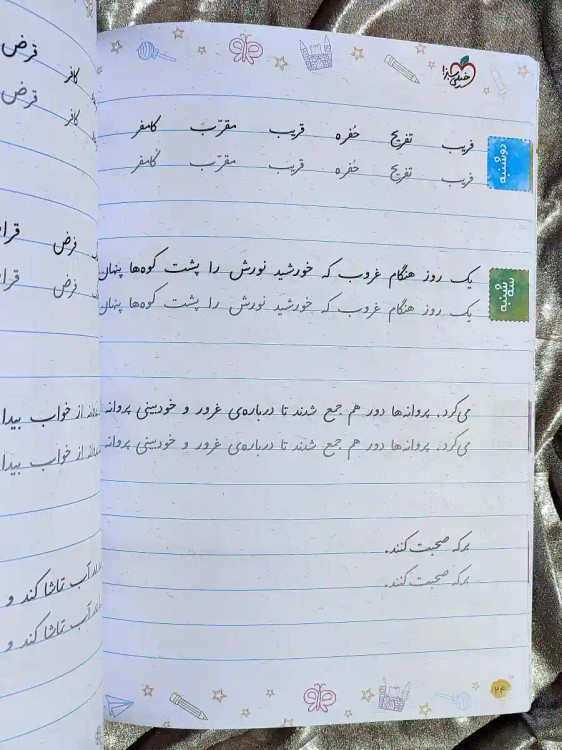 دوشنبه
فریب تفریح حُفره قریب مقرّب کامفر
فریب تفریح حُفره قریب مقرّب کامفر
سه‌شنبه
یک روز هنگام غروب که خورشید نورش را پشت کوه‌ها پنهان
یک روز هنگام غروب که خورشید نورش را پشت کوه‌ها پنهان
می‌کرد، پروانه‌ها دور هم جمع شدند تا درباره‌ی غرور و خودبینی پروانه
می‌کرد، پروانه‌ها دور هم جمع شدند تا درباره‌ی غرور و خودبینی پروانه
برکه صحبت کنند.
برکه صحبت کنند.
۲۴
قرض
کافر
قرض
کافر
قرض
قرض
از خواب
از خواب
آب تماشا کند و
آب تماشا کند و